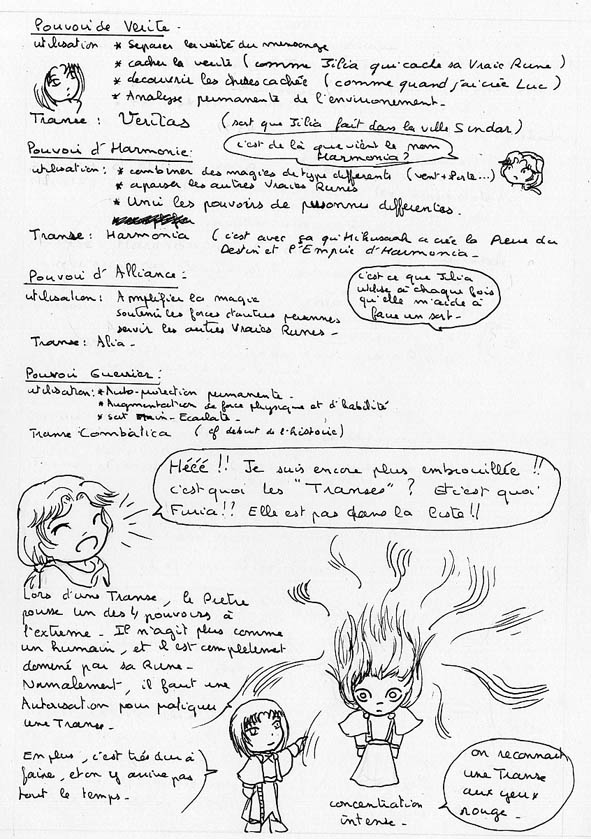 Pouvoir de Verite -
utilisation * Separer la vérité du mensonge
* cacher la verité (comme Jilia qui cache sa Vraie Rune)
* decouvrir les choses cachée (comme quand j'ai crée Luc)
* Analyse permanente de l'environement -
Transe: Veritas (sort que Jilia fait dans la ville Sindar)
Pouvoir d'Harmonie:
c'est de là que vient le nom
Harmonia?
utilisation: * combiner des magies de type differents (vent + Perle...)
* apaiser les autres Vraies Runes
* Unir les pouvoirs de personnes differentes.
Transe: Harmonia (c'est avec ça qu'Hikusaak a crée la Pierre du
Destin et l'Empire d'Harmonia -
Pouvoir d'Alliance:
utilisation: Amplifier la magie
soutenir les forces d'autres personnes
servir les autres Vraies Runes -
Transe: Alia -
c'est ce que Jilia
utilise à chaque fois
qu'elle m'aide à
faire un sort -
Pouvoir Guerrier:
utilisation: * Auto-protection permanente -
* Augmentation de force physique et d'habilité
* sort Main-Ecarlate -
Transe Combatica (cf debut de l'histoire)
Hééé !! Je suis encore plus embrouillée !!
c'est quoi les "Transes"? Et c'est quoi
Furia!! Elle est pas dans la liste!!
Lors d'une Transe, le Pretre
pousse un des 4 pouvoirs à
l'extreme - Il n'agit plus comme
un humain, et il est completemet
dominé par sa Rune -
Normalement, il faut une
Autorisation pour pratiquer
une Transe -
En plus, c'est trés dur à
faire, et on y arrive pas
tout le temps -
concentration
intense -
on reconnait
une Transe
aux yeux
rouge -